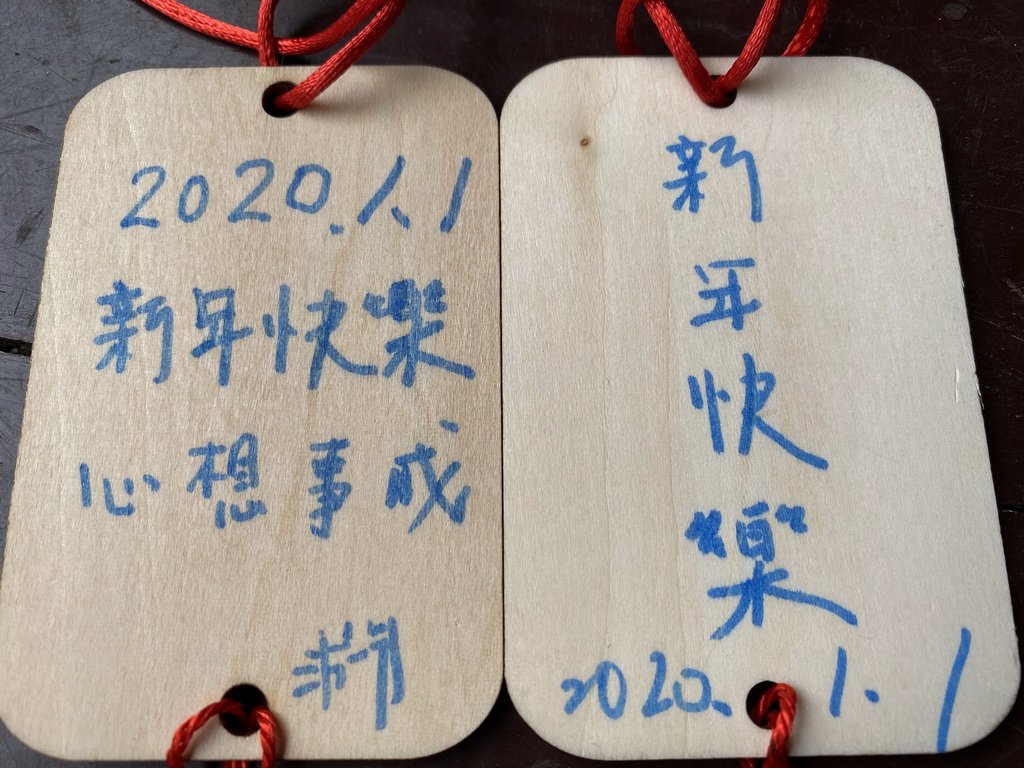 2020.1.1
新年快樂
心想事成
新
年
快
樂
2020.1.1